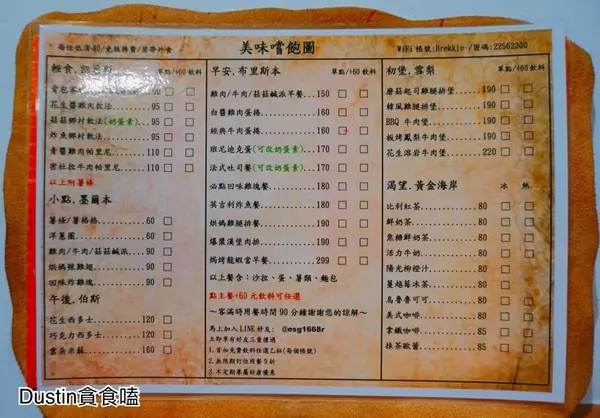 每位低消80/免服務費/禁帶外食
美味嚐飽圖
WiFi帳號:Brekkie/密碼:22562300
輕食.
單點/+60飲料
花生醬雞肉軟法 95
菇菇鄉村軟法(奶蛋素) 95
炸魚鄉村軟法 95
青醬雞肉帕里尼 110
密社拉牛肉帕里尼 110
以上附薯條
小點.墨爾本
薯條/薯格格 60
洋蔥圈 60
雞肉/牛肉/菇菇鹹派 90
烘媽辣雞翅 90
回味炸雞塊 90
午後.伯斯
花生西多士 120
巧克力西多士 120
雲朵米蘇 160
早安.布里斯本
單點/+60飲料
雞肉/牛肉/菇菇鹹派早餐 150
白醬雞肉蛋捲 160
經典牛肉蛋捲 160
班尼迪克蛋(可改奶蛋素) 170
法式吐司餐(可改奶蛋素) 170
必點回味雞塊餐 180
英吉利炸魚餐 180
烘媽雞腿排餐 190
爆漿漢堡肉排 190
焗烤龍蝦當早餐 299
以上餐含:沙拉、蛋、薯類、麵包
點主餐+60元飲料可任選
~客滿時用餐時間90分鐘謝謝您的諒解~
馬上加入LINE好友: @esg1668r
立即享有好友三重禮遇
1.首加免費飲料任選乙杯(每個帳號)
2.無限期打位用餐9折
3.不定期專屬好康優惠
初堡.雪梨
單點/+60飲料
磨菇起司雞腿排堡 190
韓風雞腿排堡 190
BBQ 牛肉堡 190
板烤鳳梨牛肉堡 190
花生溶岩牛肉堡 220
渴望.黃金海岸
冰 熱
比利紅茶 80
鮮奶茶 80
焦糖鮮奶茶 80
活力牛奶 80
陽光柳橙汁 80
蔓越莓冰茶 80
烏魯魯可可 80
美式咖啡 80
拿鐵咖啡 85
抹茶歐蕾 85
Dustin貪食嗑